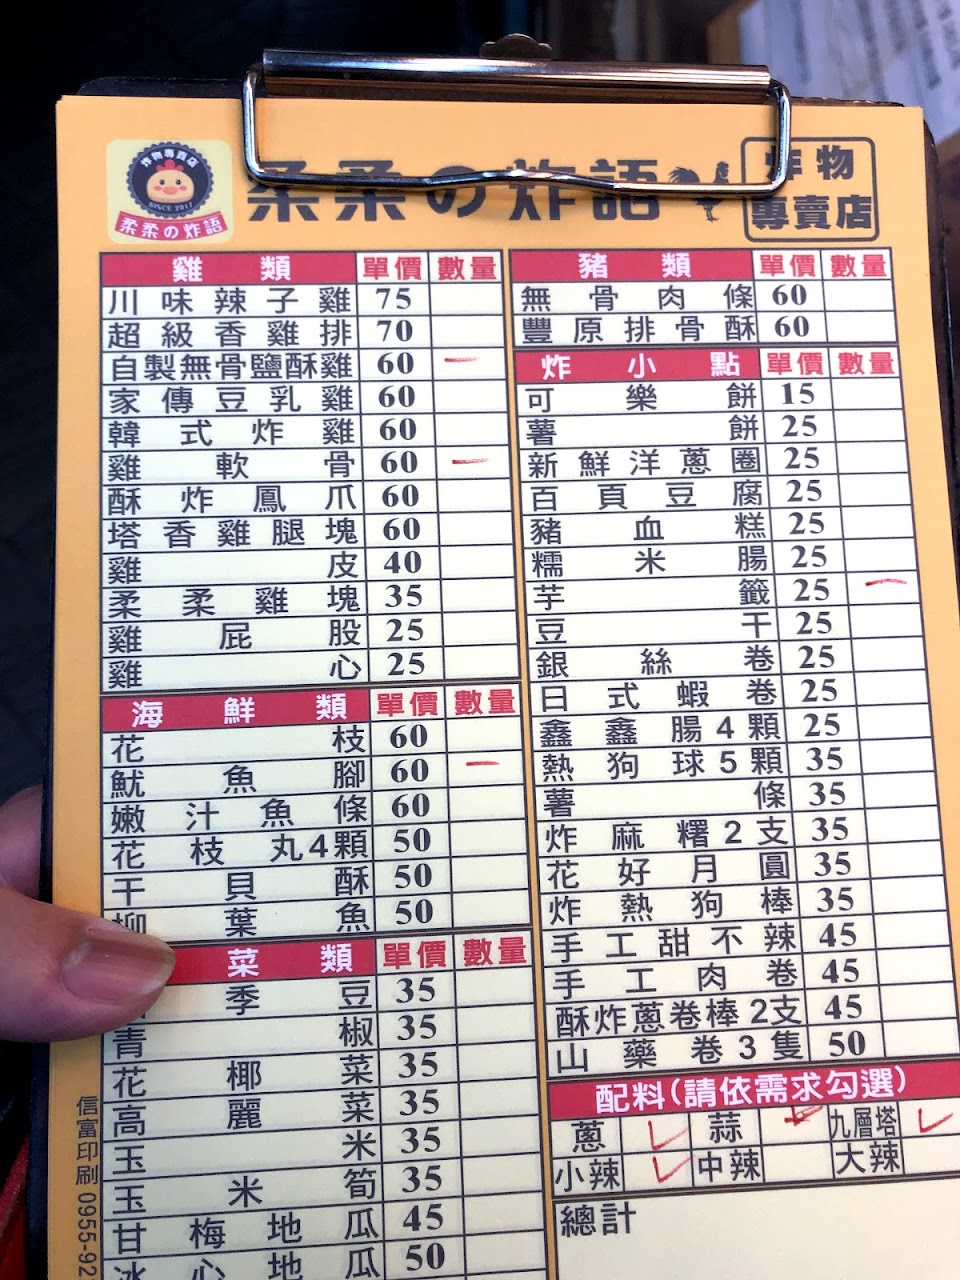 炸物專賣店
SINCE 2017
柔柔の炸語
柔柔の炸語
炸物
專賣店
雞類 單價 數量
川味辣子雞 75
超級香雞排 70
自製無骨鹽酥雞 60 一
家傳豆乳雞 60
韓式炸雞 60
雞軟骨 60 一
酥炸鳳爪 60
塔香雞腿塊 60
雞皮 40
柔柔雞塊 35
雞屁股 25
雞心 25
海鮮類 單價 數量
花枝 60
魷魚腳 60 一
嫩汁魚條 60
花枝丸4顆 50
干貝酥 50
柳葉魚 50
菜類 單價 數量
季豆 35
青椒 35
花椰菜 35
高麗菜 35
玉米 35
玉米筍 35
甘梅地瓜 45
冰心地瓜 50
豬類 單價 數量
無骨肉條 60
豐原排骨酥 60
炸小點 單價 數量
可樂餅 15
薯餅 25
新鮮洋蔥圈 25
百頁豆腐 25
豬血糕 25
糯米腸 25
芋籤 25 一
豆干 25
銀絲卷 25
日式蝦卷 25
鑫鑫腸4顆 25
熱狗球5顆 35
薯條 35
炸麻糬2支 35
花好月圓 35
炸熱狗棒 35
手工甜不辣 45
手工肉卷 45
酥炸蔥卷棒2支 45
山藥卷3隻 50
配料(請依需求勾選)
蔥 ✓ 蒜 ✓ 九層塔 ✓
小辣 ✓ 中辣 大辣
總計
信富印刷 0955-92